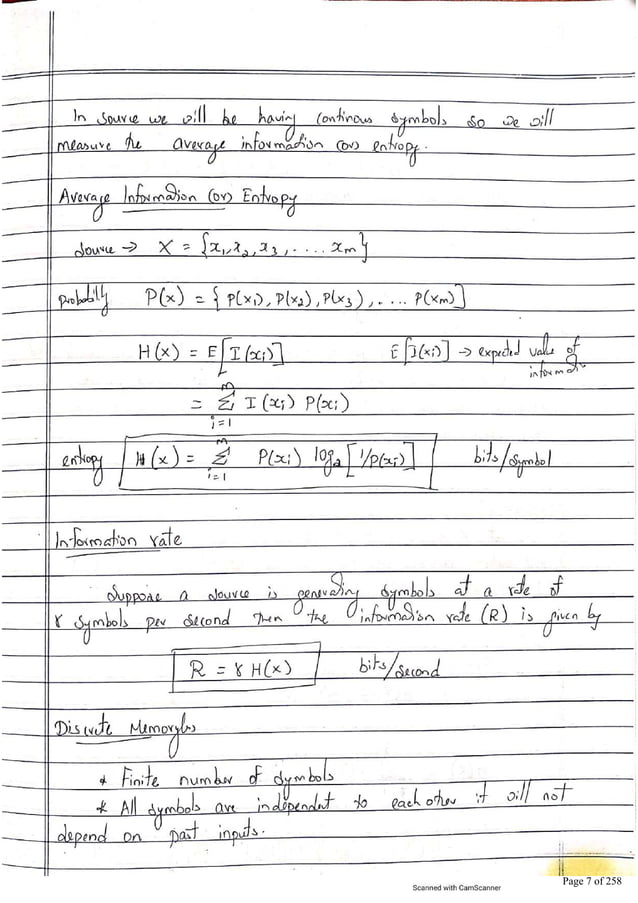 In source we will be having Continous symbols so we will
measure the average information (or) entropy.
Average Information (or) Entropy
source → X = {x₁, x₂, x₃, .... xₘ}
probability P(x) = { P(x₁), P(x₂), P(x₃), .... P(xₘ)]
H(x) = E[I(xᵢ)] E[I(xᵢ)] → expected value of
informatn
= m Σ i=1 I(xᵢ) P(xᵢ)
entropy H(x) = m Σ i=1 P(xᵢ) log₂ [1/P(xᵢ)] bits/symbol
Information rate
Suppose a source is generating symbols at a rate of
r symbols per second then the information rate (R) is given by
R = r H(x) bits/second
Discrete Memoryles
* Finite number of symbols
* All symbols are independent to each other it will not
depend on past inputs.
Page 7 of 258
Scanned with CamScanner